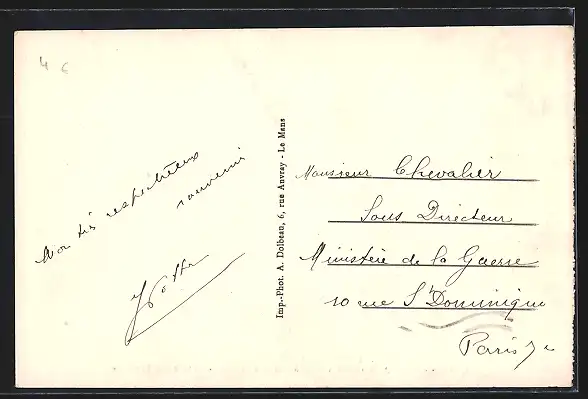 4 €
Mon très respectueux
souvenir
Imp.-Phot. A. Dolbeau, 6, rue Auvray - Le Mans
Monsieur Chevalier
Sous Directeur
Ministère de la Guerre
10 rue St Dominique
Paris 7e